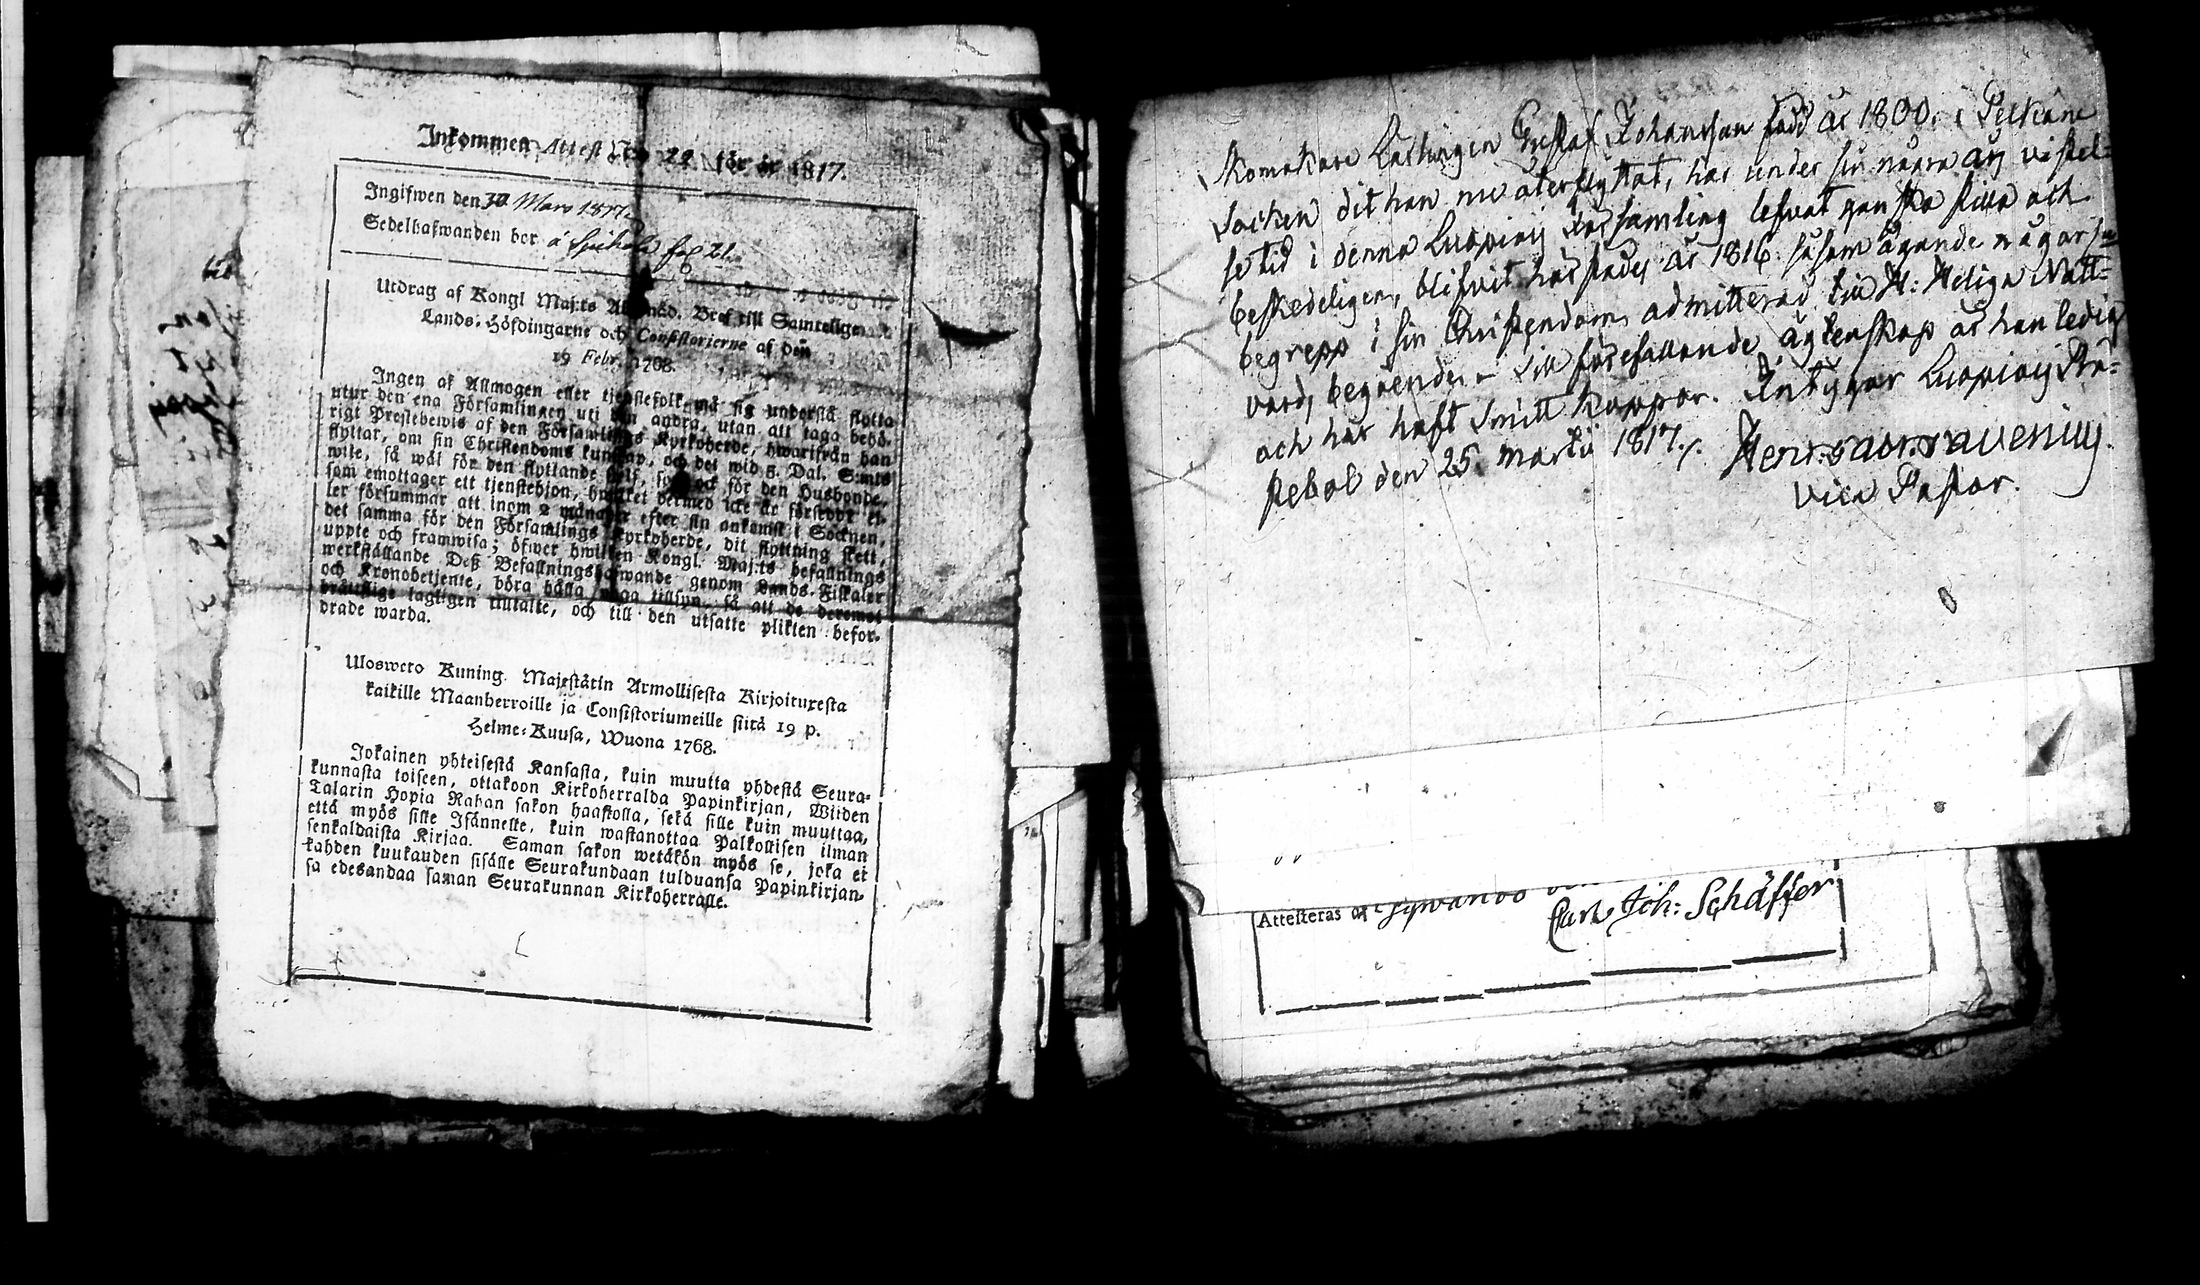 Inkommen Attest N:o 22 för år 1817.
Ingifwen den 30 Mars 1817.
Sedelhafwanden bor á fol 21.
Utdrag af Kongl Maj:ts Allernåd. Bref till Samtelige
Lands-Höfdingarne och Consistorierne af den
19 Febr. 1768.
Ingen af Allmogen eller tjenstefolk må sig understå flytta
utur den ena Församlingen uti den andra, utan att taga behö-
rigt Prestebewis af den Församlings Kyrkoherde, hwarifrån han
flyttar, om sin Christendoms kunskap, och det wid 5. Dal. S:mts
wite, så wäl för den flyttande sjelf, som ock för den Husbonde,
som emottager ett tjenstehjon, hwilket dermed icke är försedt; el-
ler försummar att inom 2 månader efter sin ankomst i Socknen,
det samma för den Församlings Kyrkoherde, dit flyttning skett,
uppte och framwisa; öfwer hwilken Kongl. Maj:ts befallnings
werkställande Deß Befallningshafwande genom Lands-Fiskaler
och Kronobetjente, böra hålla noga tillsyn, så att de deremot
bråttslige lagligen tilltalte, och till den utsatte plikten befor-
drade warda.
Ulosweto Kuning. Majestätin Armollisesta Kirjoituxesta
kaikille Maanherroille ja Consistoriumeille siitä 19 p.
Helme-Kuusa, Wuona 1768.
Jokainen yhteisestä Kansasta, kuin muutta yhdestä Seura-
kunnasta toiseen, ottakoon Kirkoherralda Papinkirjan, Wiiden
Talarin Hopia Rahan sakon haastolla, sekä sille kuin muuttaa,
että myös sille Isännelle, kuin wastanottaa Palkollisen ilman
senkaldaista Kirjaa. Saman sakon wetäkön myös se, joka ei
kahden kuukauden sisälle Seurakundaan tulduansa Papinkirjan-
sa edesandaa saman Seurakunnan Kirkoherralle.
Skomakare Lärlingen Gustaf Johansson född år 1800. i Pelkäne
Socken dit han nu återflyttat, har under sin några års vistel-
se tid i denna Luopiois Församling lefvat ganska stilla och
beskedeligen, blifvit härstädes år 1816. såsom ägande någorlu
begrepp i sin Christendom admitterad till H: Heliga Natt-
vard, begående. Till förefallande ägtenskap är han ledig
och har haft Smitt Koppor. Intygar Luopiois Prä-
stebol den 25. Martii 1817.
vice Pastor.
Attesteras af
Carl Joh: Schäffer